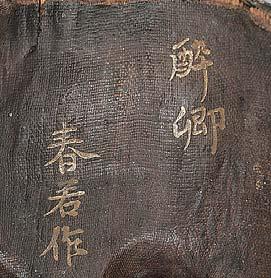 醉卿
春若作